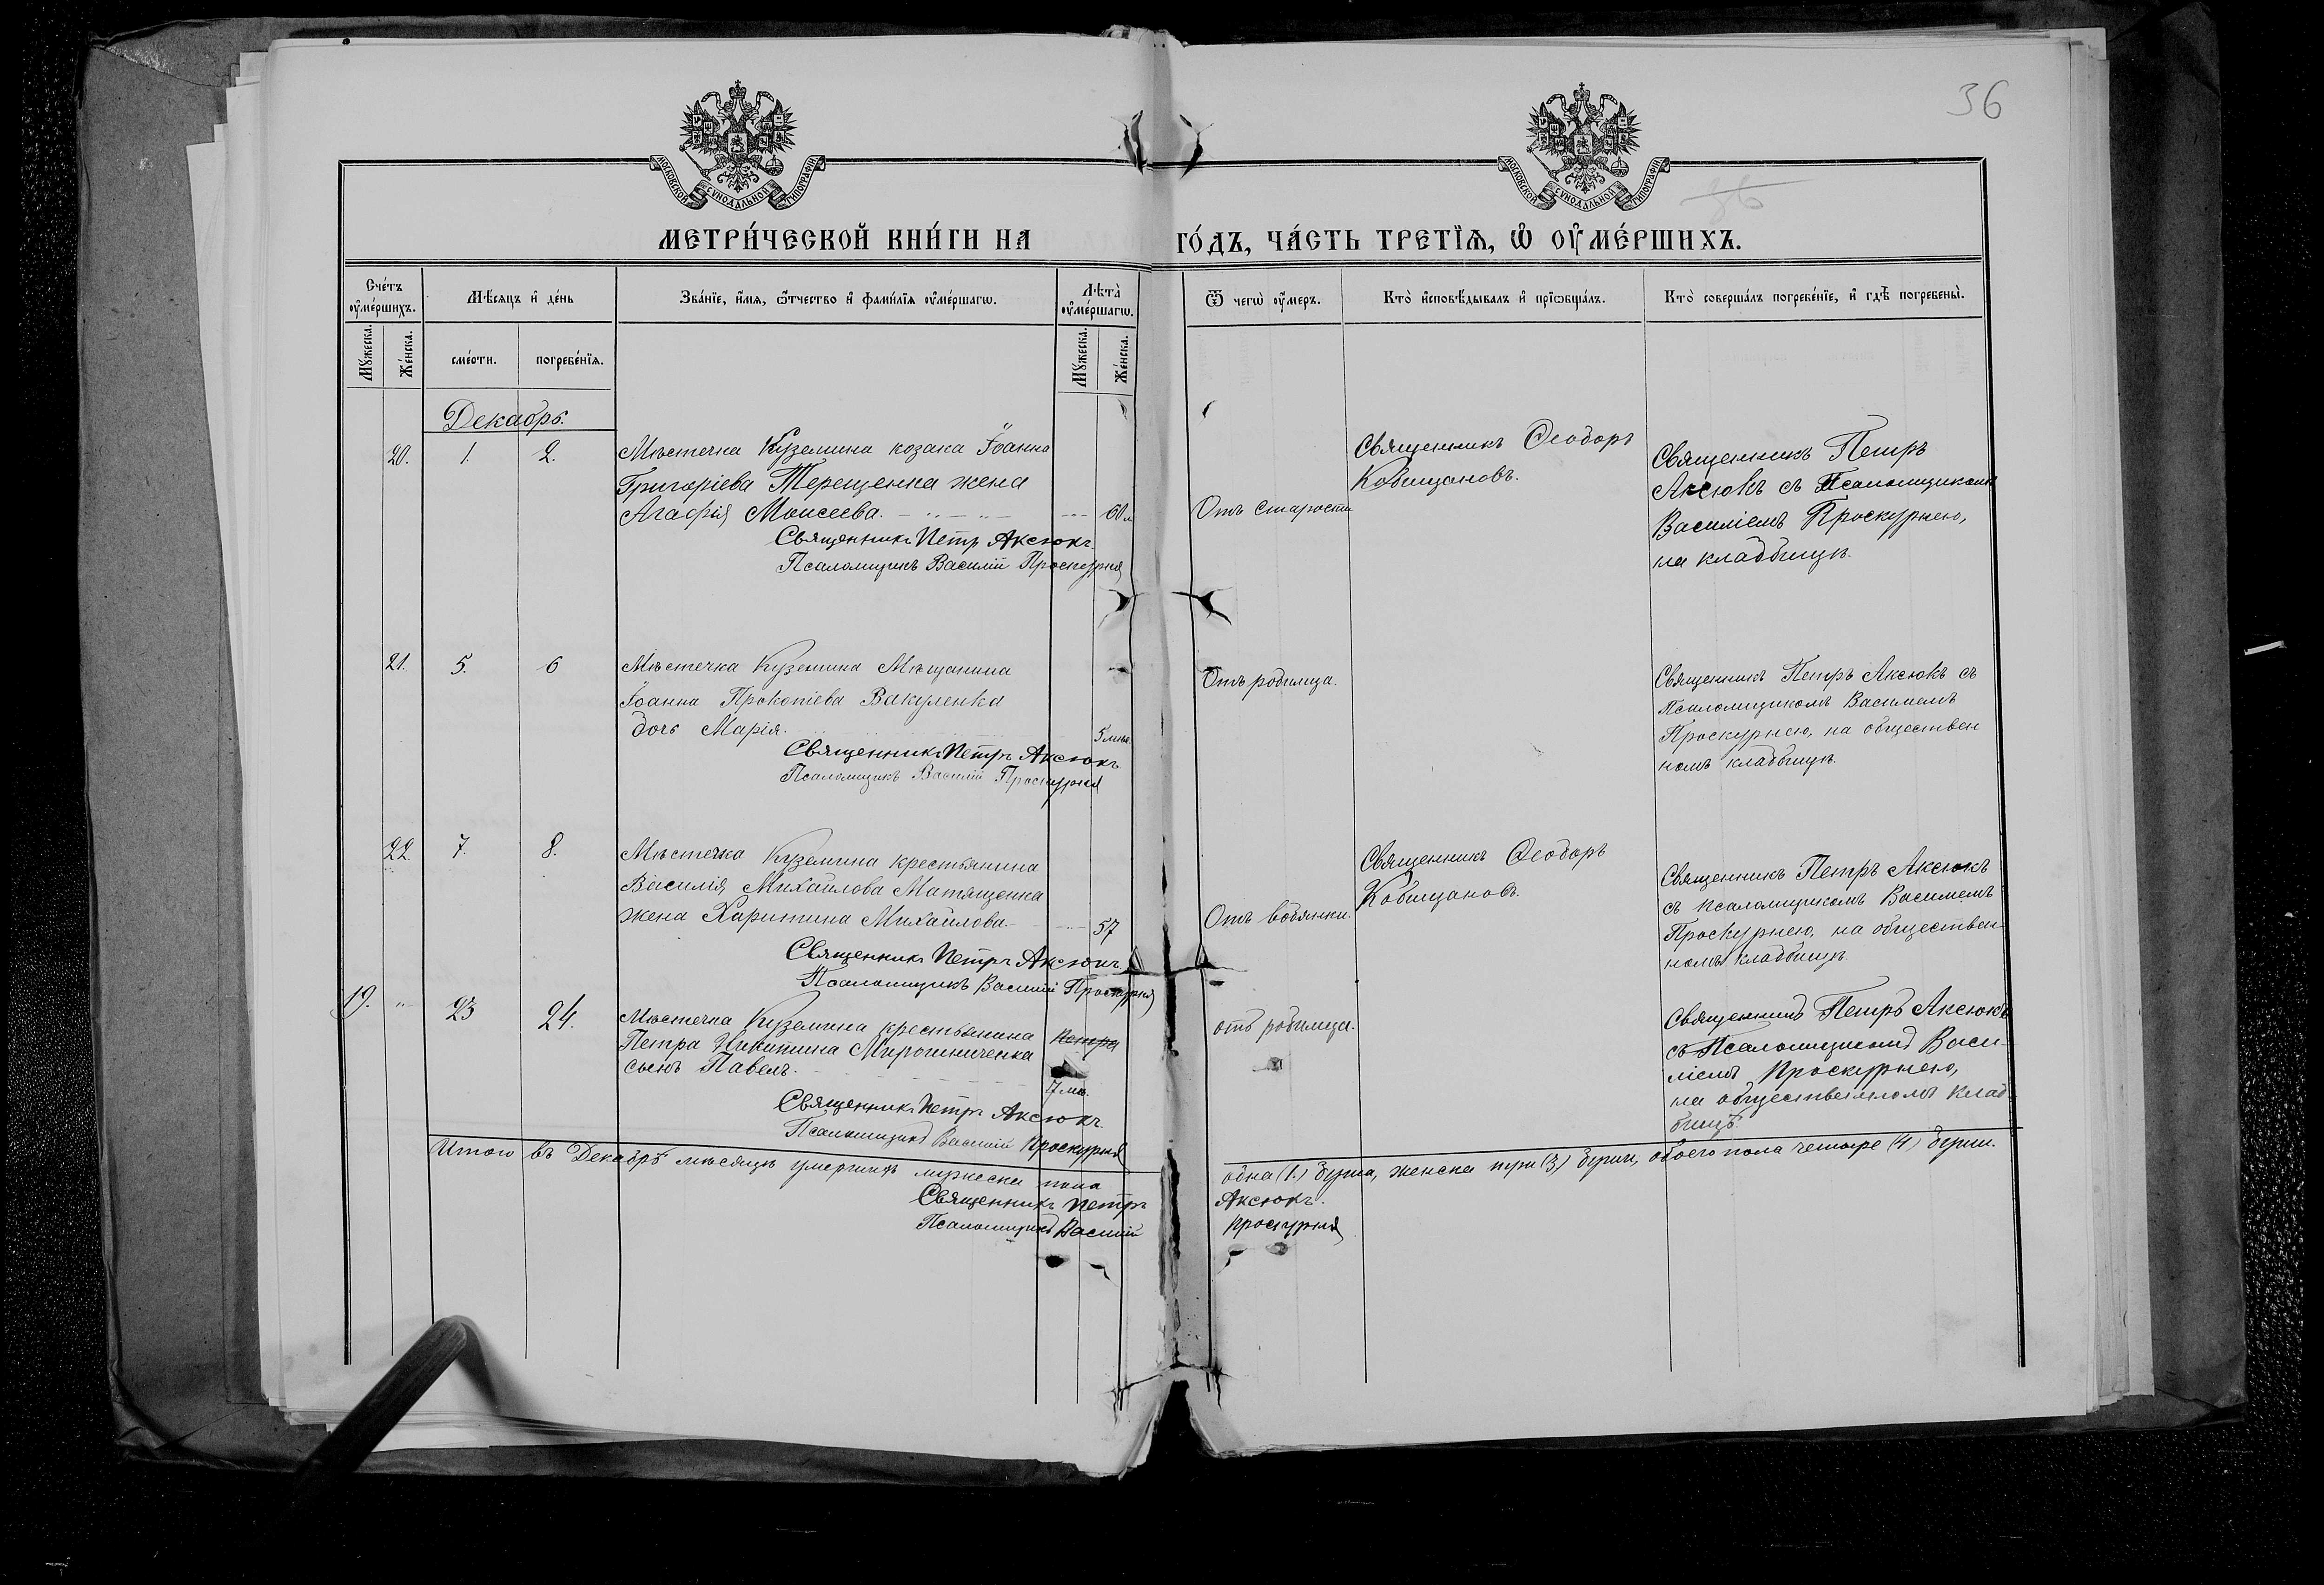 36
МОСКОВСКОЙ СѴНОДАЛЬНОЙ ТИПОГРАФІИ
МОСКОВСКОЙ СѴНОДАЛЬНОЙ ТИПОГРАФІИ
36
МЕТРИ́ЧЕСКОЙ КНИ́ГИ НА ГО́ДЪ, ЧА́СТЬ ТРЕТІѦ, Ѽ ОУ҆МЕ́РШИХЪ.
Сче́тъ оу҆ме́ршихъ.
Мѣ́сяцъ и҆ де́нь
Зва́нїе, и҆́мя, ѻ҆́тчество и҆ фами́лїя оу҆ме́ршагѡ.
Лѣ̀та̀ оу҆ме́ршагѡ.
Ѿ чегѡ̀ оу҆́меръ.
Кто̀ и҆сповѣ́дывалъ и҆ прїѡбща́лъ.
Кто̀ соверша́лъ погребе́нїе, и҆ гдѣ̀ погребены̀.
Мꙋ́жеска.
Же́нска.
сме́рти.
погребе́нїя.
Мꙋ́жеска.
Же́нска.
Декабрь.
20. 1. 2. Мѣстечка Куземина козака Іоанна
Григоріева Терещенка жена
Агафія Моисеева. 60 л
Священникъ Петръ Аксюкъ.
Псаломщикъ Василій Проскурня
Отъ старости
Священникъ Ѳеодоръ
Кобищановъ.
Священникъ Петръ
Аксюкъ съ Псаломщикомъ
Василіемъ Проскурнею,
на кладбищѣ.
21. 5. 6 Мѣстечка Куземина Мѣщанина
Іоанна Прокопіева Вакуленка
дочь Марія. 5 мѣс.
Священникъ Петръ Аксюкъ
Псаломщикъ Василій Проскурня
Отъ родимца.
Священникъ Петръ Аксюкъ съ
Псаломщикомъ Василіемъ
Проскурнею, на обществен
номъ кладбищѣ.
22. 7. 8. Мѣстечка Куземина крестьянина
Василія Михайлова Матященка
жена Харитина Михайлова. 57
Священникъ Петръ Аксюкъ.
Псаломщикъ Василій Проскурня
Отъ водянки.
Священникъ Ѳеодоръ
Кобищановъ.
Священникъ Петръ Аксюкъ
съ псаломщикомъ Василіемъ
Проскурнею, на обществен-
номъ кладбищѣ.
19. " 23 24. Мѣстечка Куземина крестьянина
Петра Никитина Мирошниченка
сынъ Павелъ. 7 мѣс.
Священникъ Петръ Аксюкъ.
Псаломщикъ Василій Проскурня
отъ родимца.
Священникъ Петръ Аксюкъ
съ Псаломщикомъ Васи-
ліемъ Проскурнею,
на общественномъ клад-
бищѣ.
Итого въ Декабрѣ мѣсяцѣ умершихъ мужеска пола одна (1.) душа, женска три (3) души, обоего пола четыре (4) души.
Священникъ Петръ Аксюкъ.
Псаломщикъ Василій Проскурня